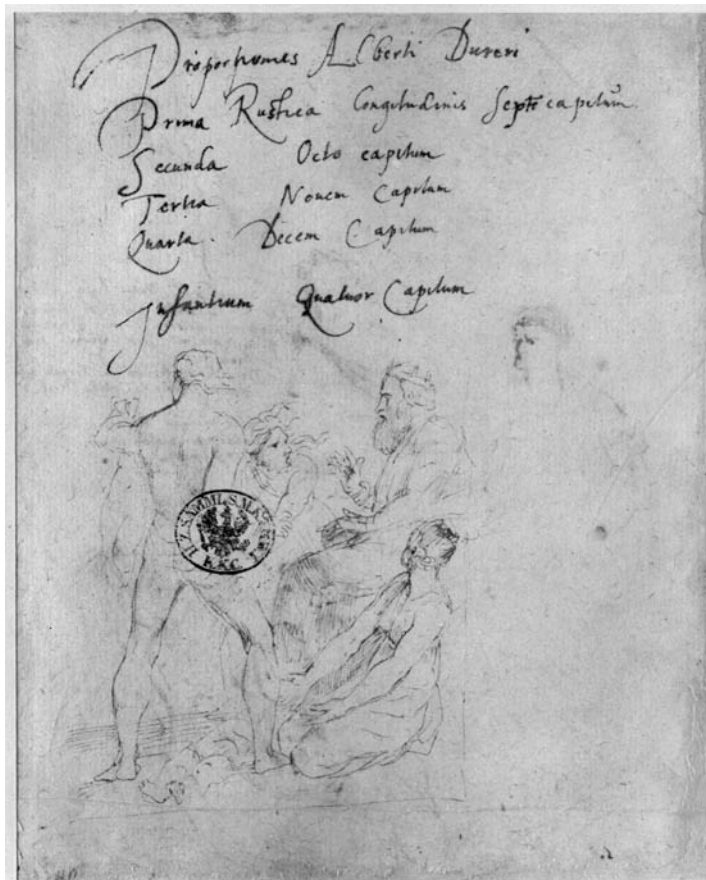 Proportiones Alberti Dureri
Prima Rustica Longitudinis Septē capitum.
Secunda Octo capitum
Tertia Novem Capitum
Quarta. Decem Capitum
Infantium Quatuor Capitum